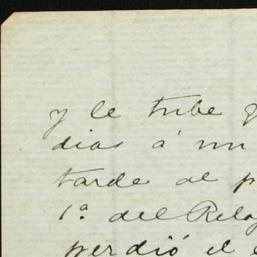 y le tube
dias á un
tarde al p
1ª del Reloj
perdió el